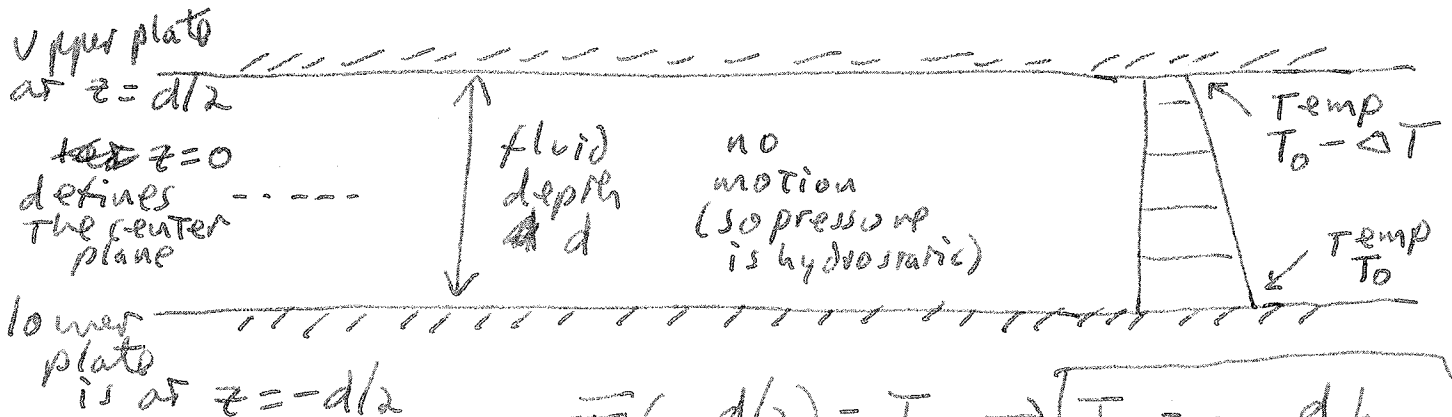 Upper plate
at z = d/2
z=0
defines
the center
plane
fluid
depth
d
no
motion
(so pressure
is hydrostatic)
Temp
T₀ - ΔT
Temp
T₀
lower
plate
is at z = -d/2